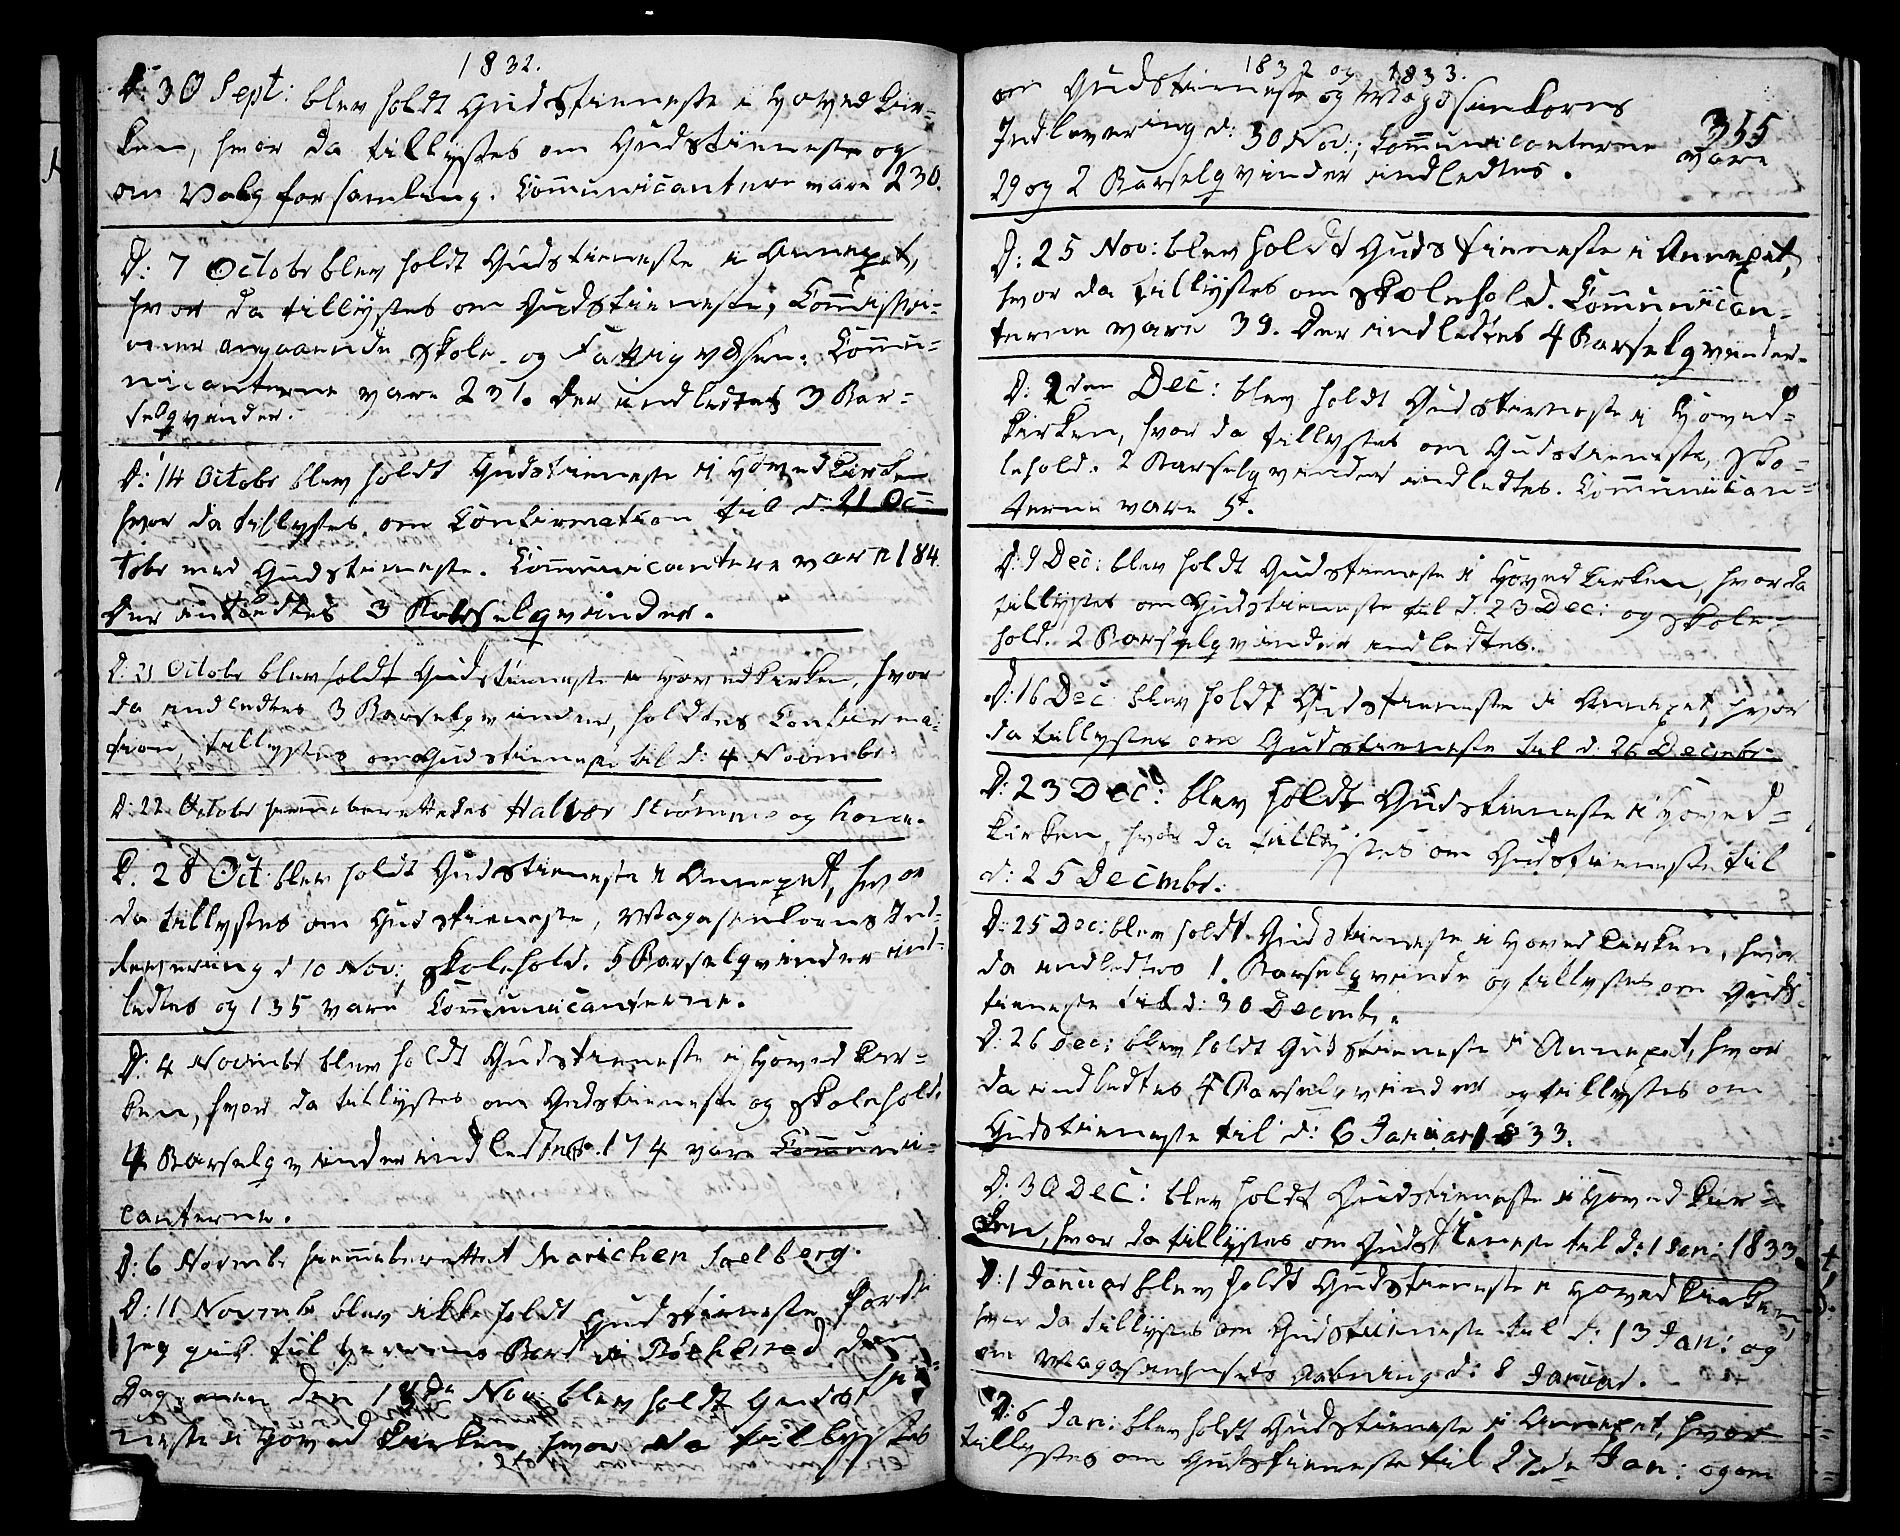 1832.
D: 30 Sept: blev holdt Gudstieneste i Hoved Kir-
ken, hvor da tillystes om Gudstieneste og
om Valgforsamling. Communicantere vare 230.
D: 7 Octobr blev holdt Gudstieneste i Annexet,
hvor da tillystes om Gudstieneste, Commissi-
oner angaaende Skole- og Fattigvæsen. Commu-
nicanterne vare 231. Der indledtes 3 Bar-
selqvinder.
D: 14 Octobr blev holdt Gudstieneste i Hoved Kirken
hvor da tillystes om Confirmation til d. 21 Oc-
tobr med Gudstieneste. Communicantere vare 184.
Der indledtes 3 Barselqvinder.
D: 21 Octobr blev holdt Gudstieneste i Hovedkirken, hvor
da indledtes 3 Barselqvinder, holdtes Confirma-
tion, tillystes om Gudstieneste til d: 4 Novembr.
D: 22 Octobr hiemmeberettedes Halvor Strømmo og Kone.
D. 28 Oct: blev holdt Gudstieneste i Annexet, hvor
da tillystes om Gudstieneste, Magasinkorns Ind-
levering d 10 Nov:, Skolehold. 5 Barselqvinder ind-
ledtes og 135 vare Communicanterne.
D: 4 Novembr blev holdt Gudstieneste i Hoved Kir-
ken, hvor da tillystes om Gudstieneste og Skolehold.
4 Barselqvinder indledtes. 174 vare Communi-
canterne.
D: 6 Novembr hiemmeberettet Marichen Saelberg.
D: 11 Novembr blev ikke holdt Gudstieneste fordi
jeg gik til Herrens Bord i den
Dag, men den 18de Nov: blev holdt Gudstie-
neste i Hoved Kirken, hvor da tillystes
1832 og 1833.
355
om Gudstieneste og Magasinkorns
Indlevering d: 30 Nov:, Communicanterne vare
29 og 2 Barselqvinder indledtes.
D: 25 Nov: blev holdt Gudstieneste i Annexet,
hvor da tillystes om Skolehold. Communican-
terne vare 39. Der indledtes 4 Barselqvinder.
D: 2den Dec: blev holdt Gudstieneste i Hoved-
kirken, hvor da tillystes om Gudstieneste, Sko-
lehold. 2 Barselqvinder indledtes. Communican-
terne vare 5.
D: 9 Dec: blev holdt Gudstieneste i Hoved Kirken, hvor da
tillystes om Gudstieneste til d. 23 Dec: og Skole-
hold. 2 Barselqvinder indledtes.
D: 16 Dec blev holdt Gudstieneste i Annexet, hvor
da tillystes om Gudstieneste til d. 26 Decembr.
D: 23 Dec: blev holdt Gudstieneste i Hoved-
kirken, hvor da tillystes om Gudstieneste til
d: 25 Decembr.
D: 25 Dec: blev holdt Gudstieneste i Hoved Kirken, hvor
da indledtes 1. Barselqvinde og tillystes om Guds-
tieneste til d: 30 Decembr.
D: 26 Dec: blev holdt Gudstieneste i Annexet, hvor
da indledtes 4 Barselqvinder og tillystes om
Gudstieneste til d: 6 Januar 1833.
D: 30 Dec: blev holdt Gudstieneste i Hoved Kir-
ken, hvor da tillystes om Gudstieneste til d: 1 Jan: 1833.
D: 1 Januar blev holdt Gudstieneste i Hoved Kirken,
hvor da tillystes om Gudstieneste til d: 13 Jan: og
om Magasinhusets Aabning d: 8 Januar.
D: 6 Jan: blev holdt Gudstieneste i Annexet, hvor
tillystes om Gudstieneste til 27de Jan: og om